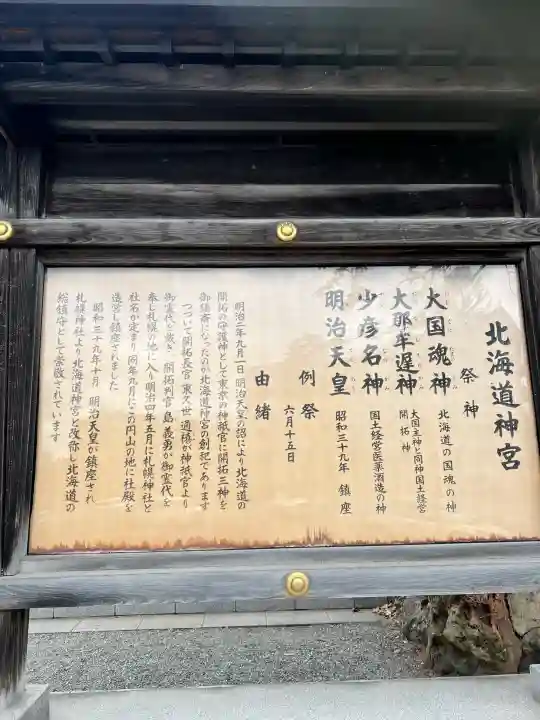 北海道神宮
祭神
大国魂神
北海道の国魂の神
大那牟遅神
大国主神と同神国土経営
開拓神
少彦名神
国土経営医薬酒造の神
明治天皇
昭和三十九年 鎮座
例祭
六月十五日
由緒
明治二年九月一日 明治天皇の詔により北海道の
開拓の守護神として東京の神祇官に開拓三神を
御鎮斎になったのが北海道神宮の創祀であります
つづいて開拓長官東久世通禧が神祇官より
御霊代を戴き 開拓判官島義勇が御霊代を
奉じ札幌の地に入り明治四年五月に札幌神社と
社名が定まり同年九月にこの円山の地に社殿を
造営し鎮座されました
昭和三十九年十月 明治天皇が鎮座され
札幌神社より北海道神宮と改称し北海道の
総鎮守として崇敬されています